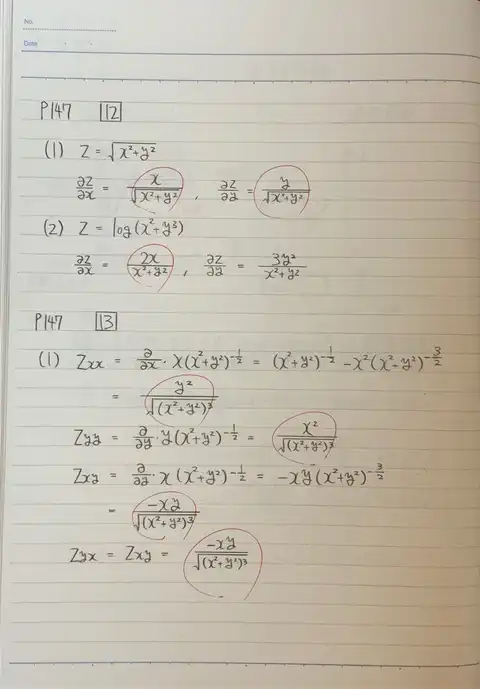 No.
Date
P147 12
(1) Z = √(x²+y²)
∂Z/∂x = x/√(x²+y²) , ∂Z/∂y = y/√(x²+y²)
(2) Z = log(x²+y³)
∂Z/∂x = 2x/(x²+y²) , ∂Z/∂y = 3y²/(x²+y²)
P147 13
(1) Zxx = ∂/∂x · x(x²+y²)^(-1/2) = (x²+y²)^(-1/2) - x²(x²+y²)^(-3/2)
= y²/√((x²+y²)³)
Zyy = ∂/∂y · y(x²+y²)^(-1/2) = x²/√((x²+y²)³)
Zxy = ∂/∂y · x(x²+y²)^(-1/2) = -xy(x²+y²)^(-3/2)
= -xy/√((x²+y²)³)
Zyx = Zxy = -xy/√((x²+y²)³)